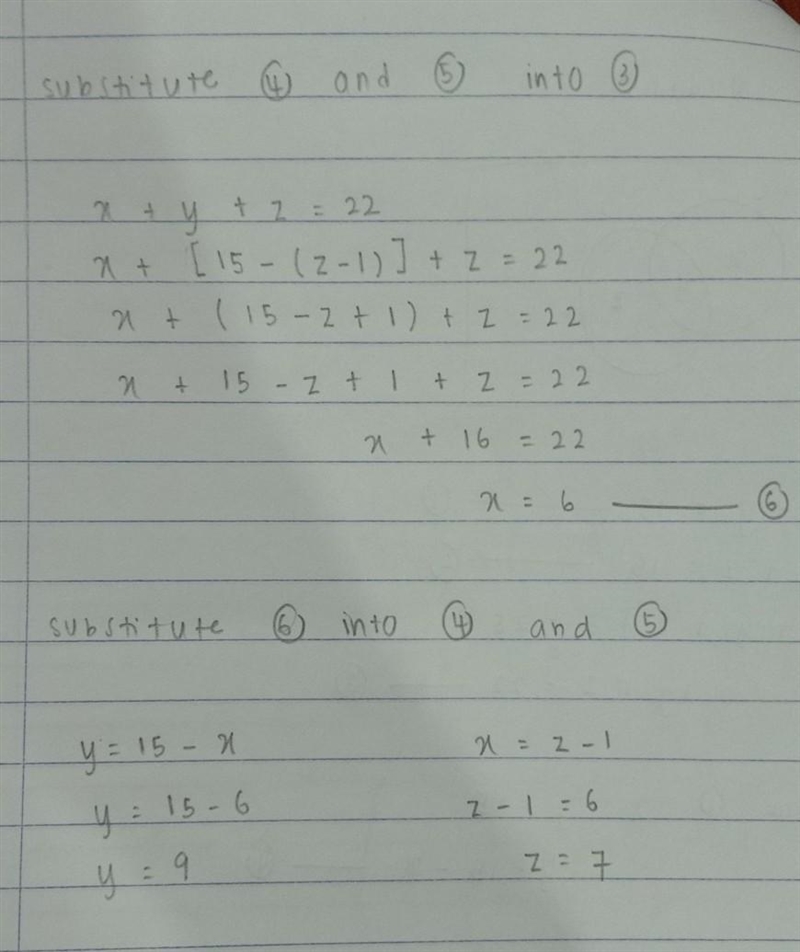 substitute ④ and ⑤ into ③
x + y + z = 22
x + [15 - (z-1)] + z = 22
x + (15 - z + 1) + z = 22
x + 15 - z + 1 + z = 22
x + 16 = 22
x = 6 ——— ⑥
substitute ⑥ into ④ and ⑤
y = 15 - x x = z - 1
y = 15 - 6 z - 1 = 6
y = 9 z = 7